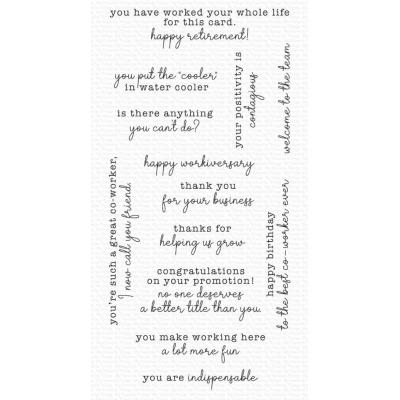 you have worked your whole life
for this card.
happy retirement!
you put the "cooler"
in water cooler
your positivity is
contagious
welcome to the team
is there anything
you can't do?
happy workiversary
you're such a great co-worker,
I now call you friend
thank you
for your business
thanks for
helping us grow
happy birthday
to the best co-worker ever
congratulations
on your promotion!
no one deserves
a better title than you.
you make working here
a lot more fun
you are indispensable